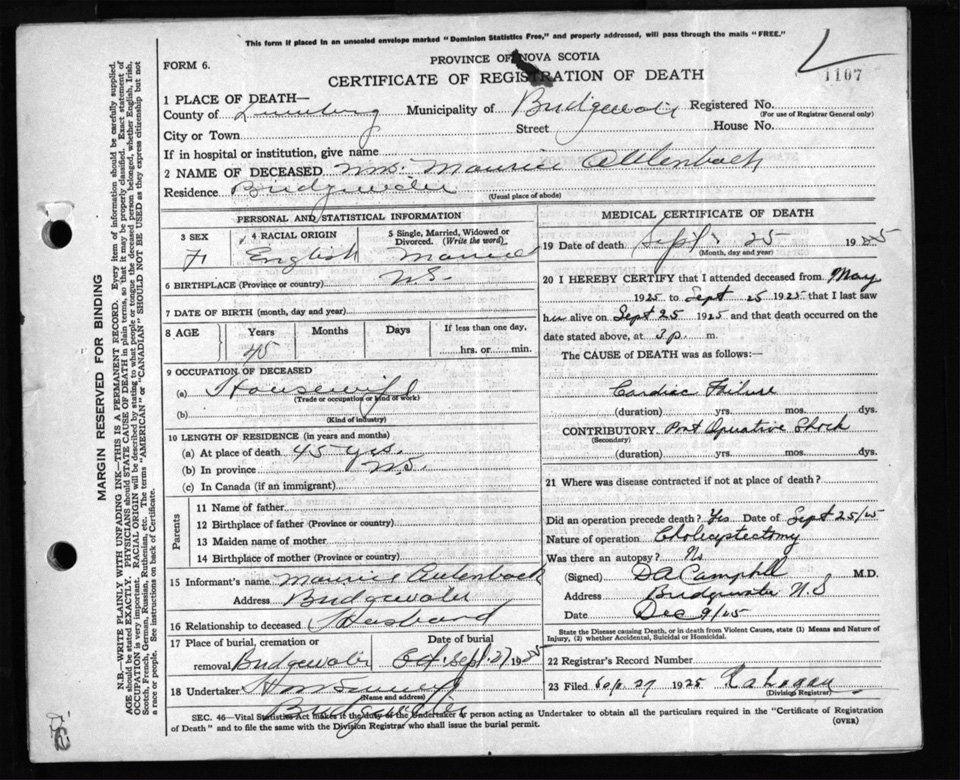 This form if placed in an unsealed envelope marked "Dominion Statistics Free," and properly addressed, will pass through the mails "FREE."
FORM 6.
PROVINCE OF NOVA SCOTIA
CERTIFICATE OF REGISTRATION OF DEATH
1107
1 PLACE OF DEATH—
County of Lunenburg Municipality of Bridgewater Registered No.
(For use of Registrar General only)
City or Town Street House No.
If in hospital or institution, give name
2 NAME OF DECEASED Mrs. Maurice
Residence Bridgewater
(Usual place of abode)
PERSONAL AND STATISTICAL INFORMATION
3 SEX
F
4 RACIAL ORIGIN
English
5 Single, Married, Widowed or Divorced. (Write the word)
Married
6 BIRTHPLACE (Province or country) N.S.
7 DATE OF BIRTH (month, day and year)
8 AGE Years Months Days If less than one day,
45 hrs. or min.
9 OCCUPATION OF DECEASED
(a) Housewife
(Trade or occupation or kind of work)
(b)
(Kind of industry)
10 LENGTH OF RESIDENCE (in years and months)
(a) At place of death 45 yrs.
(b) In province N.S.
(c) In Canada (if an immigrant)
Parents
11 Name of father
12 Birthplace of father (Province or country)
13 Maiden name of mother
14 Birthplace of mother (Province or country)
15 Informant's name Maurice
Address Bridgewater
16 Relationship to deceased Husband
17 Place of burial, cremation or Date of burial
removal Bridgewater Sept. 27 1925
18 Undertaker
(Name and address)
Bridgewater
MEDICAL CERTIFICATE OF DEATH
19 Date of death Sept. 25 1925
(Month, day and year)
20 I HEREBY CERTIFY that I attended deceased from May
1925 to Sept 25 1925 that I last saw
her alive on Sept 25 1925 and that death occurred on the
date stated above, at 3 p. m.
The CAUSE of DEATH was as follows:—
Cardiac Failure
(duration) yrs. mos. dys.
CONTRIBUTORY Post Operative Shock
(Secondary)
(duration) yrs. mos. dys.
21 Where was disease contracted if not at place of death?
Did an operation precede death? Yes Date of Sept 25/25
Nature of operation
Was there an autopsy? No
(Signed) D A Campbell M.D.
Address Bridgewater N.S
Date Dec 9/25
State the Disease causing Death, or in death from Violent Causes, state (1) Means and Nature of
Injury, (2) whether Accidental, Suicidal or Homicidal.
22 Registrar's Record Number
23 Filed Sep. 27 1925
(Division Registrar)
SEC. 46—Vital Statistics Act makes it the duty of the Undertaker or person acting as Undertaker to obtain all the particulars required in the "Certificate of Registration
of Death" and to file the same with the Division Registrar who shall issue the burial permit.
(OVER)
MARGIN RESERVED FOR BINDING
N.B.—WRITE PLAINLY WITH UNFADING INK—THIS IS A PERMANENT RECORD. Every item of information should be carefully supplied.
AGE should be stated EXACTLY. PHYSICIANS should STATE CAUSE OF DEATH in plain terms, so that it may be properly classified. Exact statement of
OCCUPATION is very important. RACIAL ORIGIN will be described by stating to what people or tongue the deceased person belonged, whether English, Irish,
Scotch, French, German, Russian, Ruthenian, etc. The terms "AMERICAN" or "CANADIAN" SHOULD NOT BE USED as they express citizenship but not
a race or people. See instructions on back of Certificate.